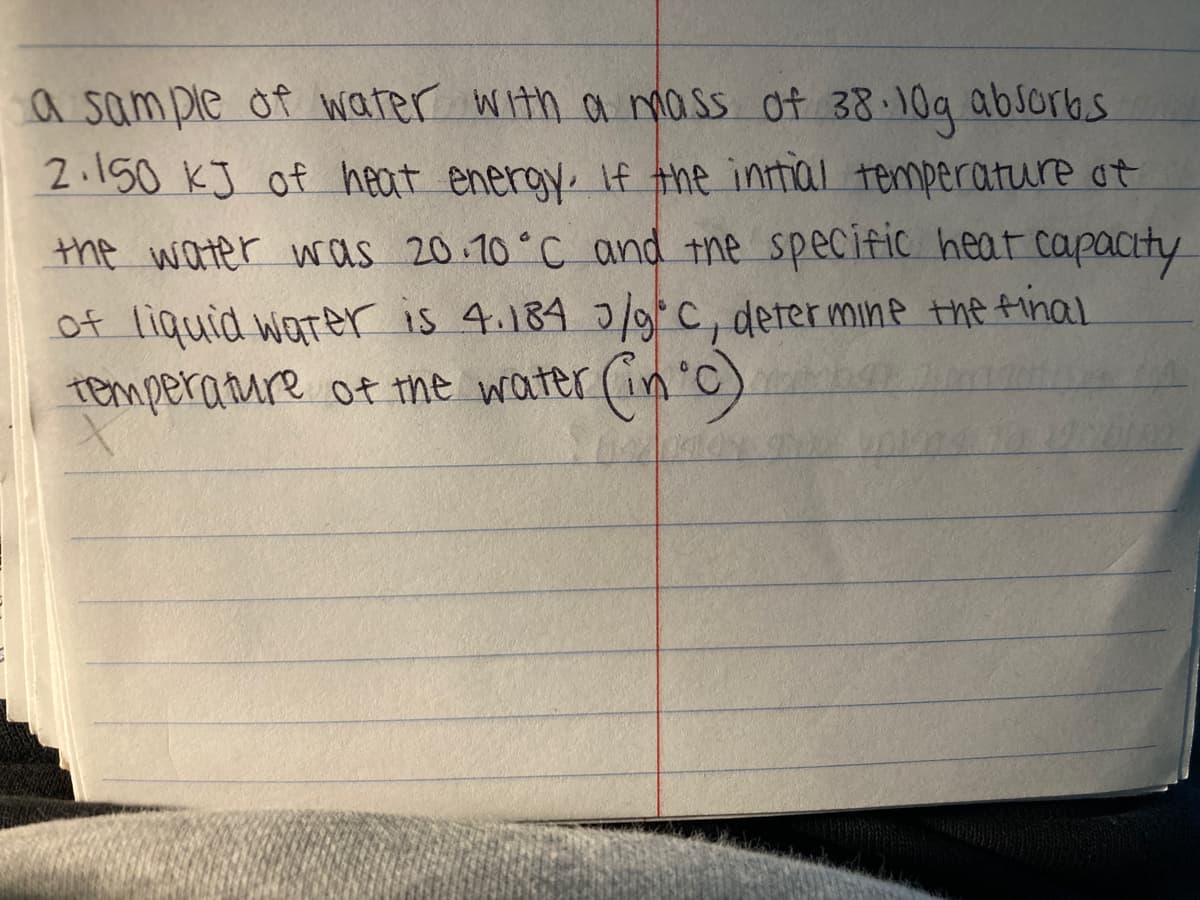 a sample of water with a mass of 38.10g absorbs
2.150 KJ of heat energy. If the initial temperature of
the water was 20.70°C and the specific heat capacity
of liquid water is 4.184 J/g°C, determine the final
temperature of the water (in °C)